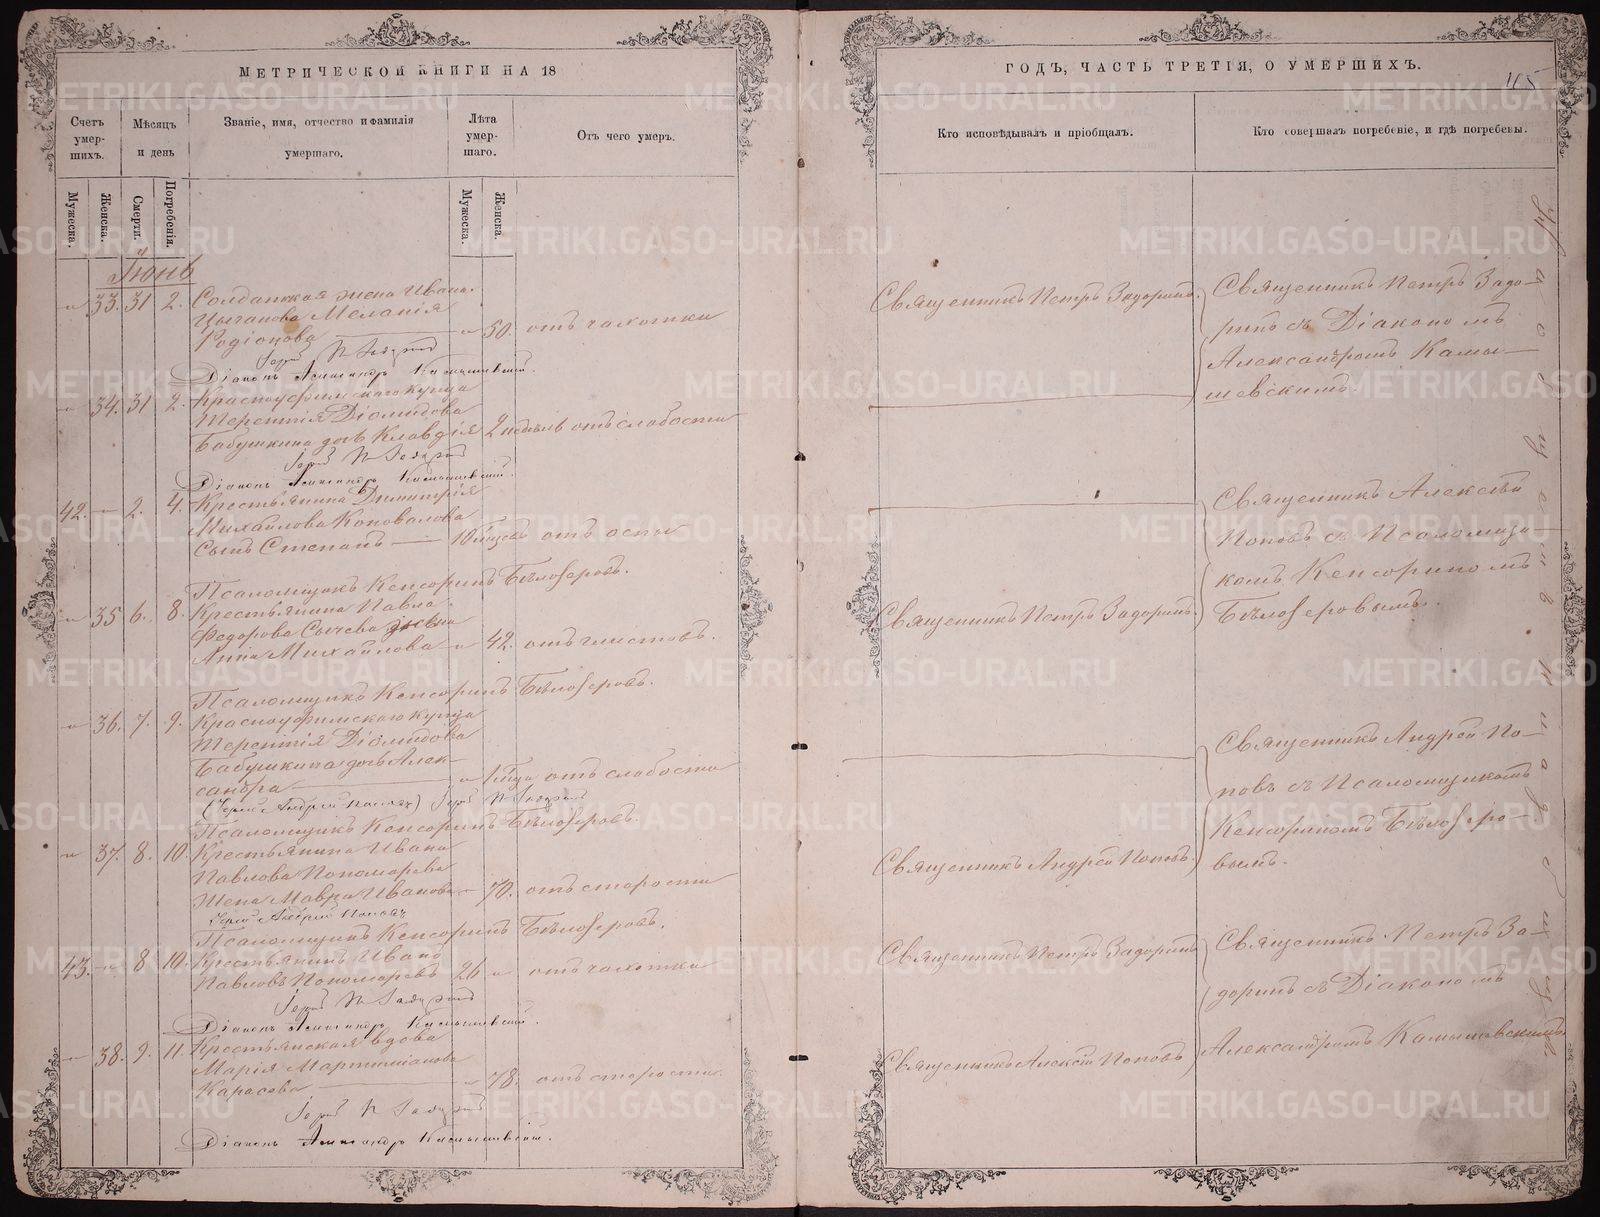 МЕТРИЧЕСКОЙ КНИГИ НА 18
ГОДЪ, ЧАСТЬ ТРЕТІЯ, О УМЕРШИХЪ.
Счетъ умер-
шихъ.
Мѣсяцъ
и день
Званіе, имя, отчество и фамилія
умершаго.
Лѣта
умер-
шаго.
Отъ чего умеръ.
Мужеска.
Женска.
Смерти.
Погребенія.
Мужеска.
Женска.
Кто исповѣдывалъ и пріобщалъ.
Кто совершалъ погребеніе, и гдѣ погребены.
Іюнь
33. 31 2. Солдатская жена Ивана
Цыганова Меланія
Родіонова 50. отъ чахотки
Діаконъ Александръ Камышевскій.
34. 31 2. Красноуфимскаго купца
Терентія Діомидова
Бабушкина дочь Клавдія 2 недѣль отъ слабости
Діаконъ Александръ Камышевскій.
42. — 2. 4. Крестьянина Димитрія
Михайлова Коновалова
сынъ Стефанъ — отъ оспы
Псаломщикъ Кенсоринъ Бѣлозеровъ.
35 6. 8. Крестьянина Павла
Федорова Сычева жена
Анна Михайлова 42. отъ глистовъ.
Псаломщикъ Кенсоринъ Бѣлозеровъ.
36. 7. 9. Красноуфимскаго купца
Терентія Діомидова
Бабушкина дочь Алек-
сандра 1 года отъ слабости
Псаломщикъ Кенсоринъ Бѣлозеровъ.
37. 8. 10. Крестьянина Ивана
Павлова Пономарева
жена Мавра Иванова 70. отъ старости
Іерей Андрей Поповъ
Псаломщикъ Кенсоринъ Бѣлозеровъ.
43. 8 10. Крестьянинъ Иванъ
Павловъ Пономаревъ 26 отъ чахотки
Діаконъ Александръ Камышевскій.
38. 9. 11. Крестьянская вдова
Марія Мартиміанова
Карасева 78. отъ старости
Діаконъ Александръ Камышевскій.
Священникъ Петръ Задоринъ.
Священникъ Петръ Задо-
ринъ съ Діакономъ
Александромъ Камы-
шевскимъ.
Священникъ Алексѣй
Поповъ съ Псаломщи-
комъ Кенсориномъ
Бѣлозеровымъ.
Священникъ Петръ Задоринъ.
Священникъ Андрей По-
повъ съ Псаломщикомъ
Кенсориномъ Бѣлозеро-
вымъ.
Священникъ Андрей Поповъ.
Священникъ Петръ Задоринъ
Священникъ Петръ За-
доринъ съ Діакономъ
Александромъ Камышевскимъ
Священникъ Алексѣй Поповъ
METRIKI.GASO-URAL.RU